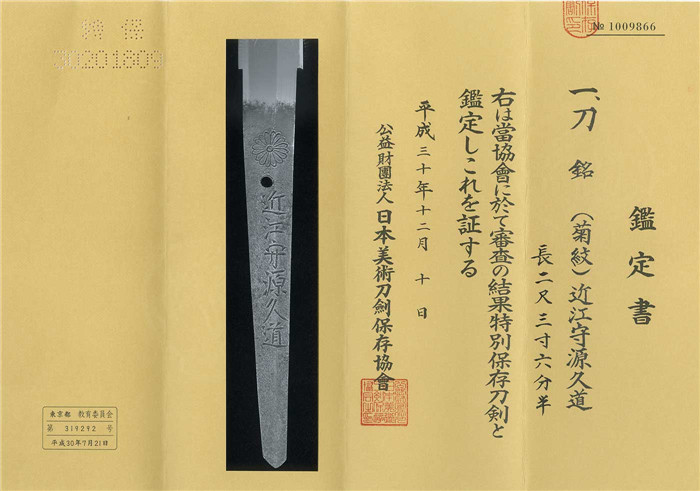 № 1009866
鑑定書
一、刀 銘 (菊紋)近江守源久道
長二尺三寸六分半
右は當協會に於て審査の結果特別保存刀剣と
鑑定しこれを証する
平成三十年十二月十日
公益財團法人 日本美術刀劍保存協會
近江守源久道
東京都 教育委員会
第 319292 号
平成30年7月21日